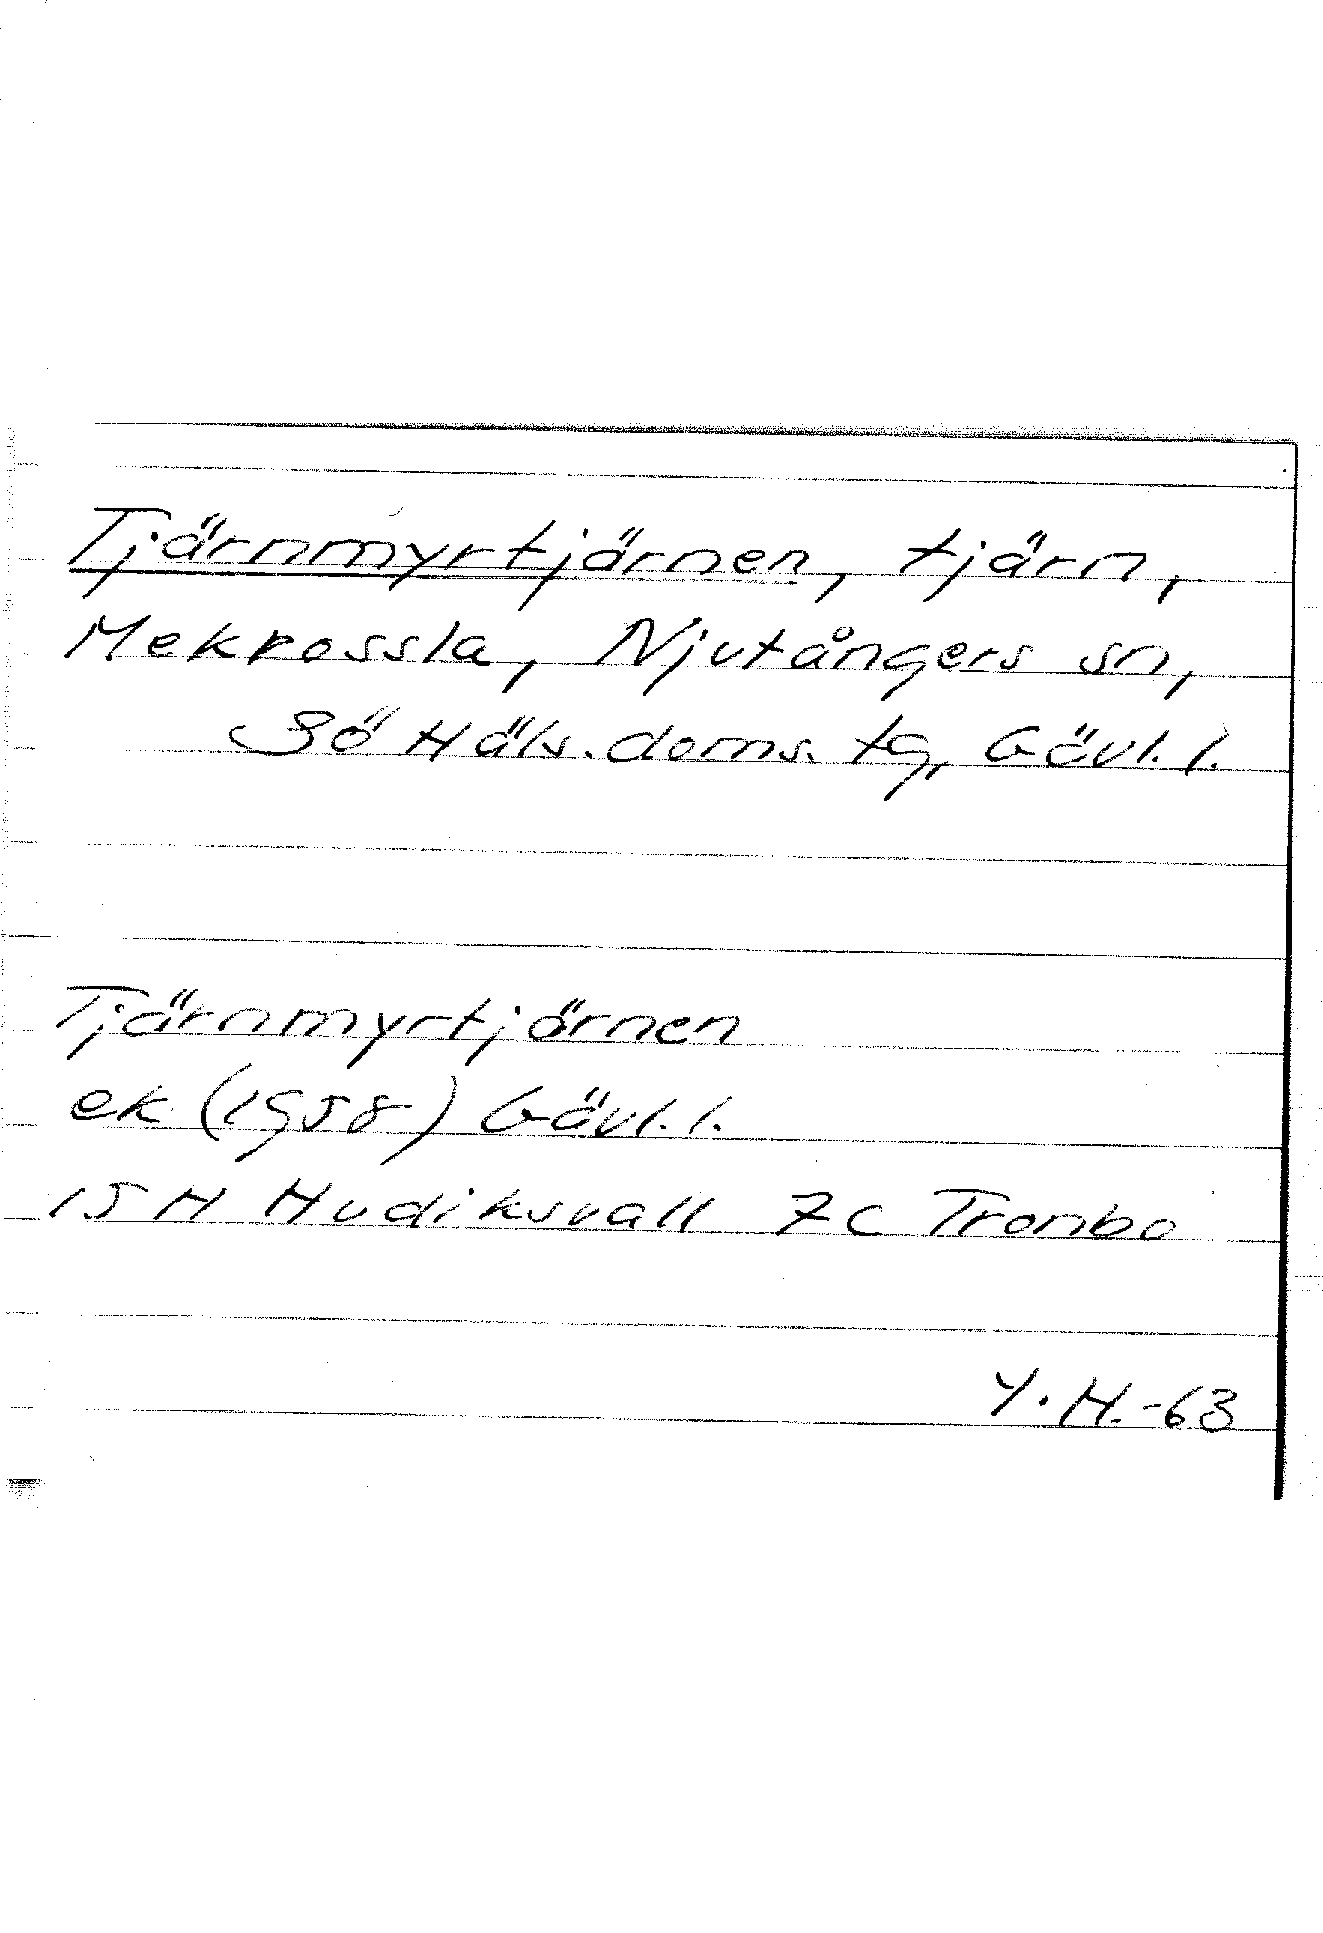 Tjärnmyrtjärnen, tjärn,
Mekrossla, Njutångers sn,
Sö Häls. doms. tg, Gävl. l.
Tjärnmyrtjärnen
ek (1958) Gävl. l.
15H Hudiksvall 7c Trombo
Y. H. -63